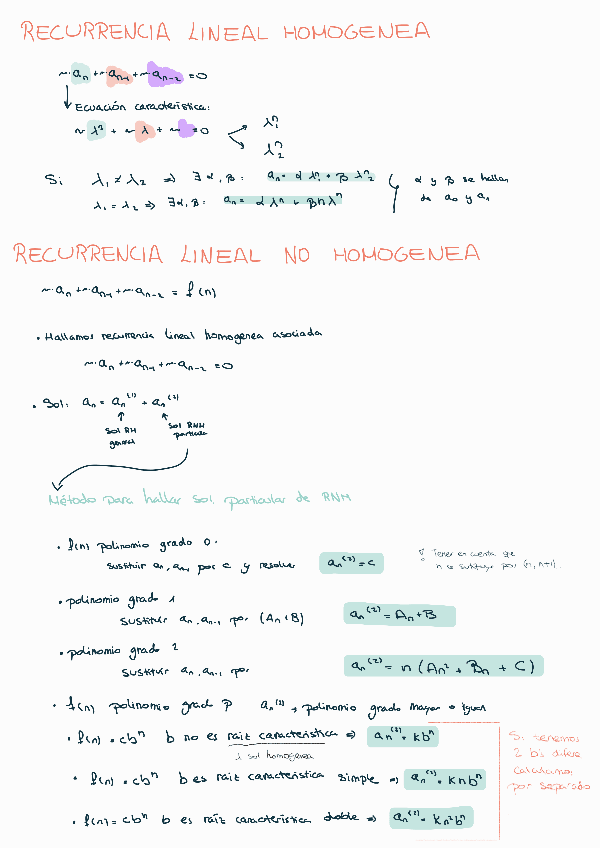 RECURRENCIA LINEAL HOMOGENEA
~·aₙ + ~·aₙ₋₁ + ~·aₙ₋₂ = 0
Ecuación característica:
~ λ² + ~ λ + ~ = 0
λ₁ⁿ
λ₂ⁿ
Si λ₁ ≠ λ₂ ⇒ ∃ α, β : aₙ = α λ₁ⁿ + β λ₂ⁿ
λ₁ = λ₂ ⇒ ∃ α, β : aₙ = α λⁿ + β n λⁿ
α y β se hallan
de a₀ y a₁
RECURRENCIA LINEAL NO HOMOGENEA
~·aₙ + ~·aₙ₋₁ + ~·aₙ₋₂ = f(n)
• Hallamos recurrencia lineal homogenea asociada
~·aₙ + ~·aₙ₋₁ + ~·aₙ₋₂ = 0
• Sol: aₙ = aₙ⁽¹⁾ + aₙ⁽²⁾
Sol RH
general
Sol RNH
particular
Método para hallar sol. particular de RNH
• f(n) polinomio grado 0
sustituir aₙ, aₙ₋₁ por c y resolver aₙ⁽²⁾ = C
Tener en cuenta que
n se sustituye por (n, n+1).
• polinomio grado 1
sustituir aₙ, aₙ₋₁ por (An+B) aₙ⁽²⁾ = An + B
• polinomio grado 2
sustituir aₙ, aₙ₋₁ por aₙ⁽²⁾ = n (An² + Bn + C)
• f(n) polinomio grad p aₙ⁽²⁾ → polinomio grado mayor o igual
• f(n) = cbⁿ b no es raíz característica ⇒ aₙ⁽²⁾ = kbⁿ
λ sol homogenea
• f(n) = cbⁿ b es raíz característica simple ⇒ aₙ⁽²⁾ = knbⁿ
• f(n) = cbⁿ b es raíz característica doble ⇒ aₙ⁽²⁾ = kn²bⁿ
Si tenemos
2 bⁿ difere
calculamos
por separado